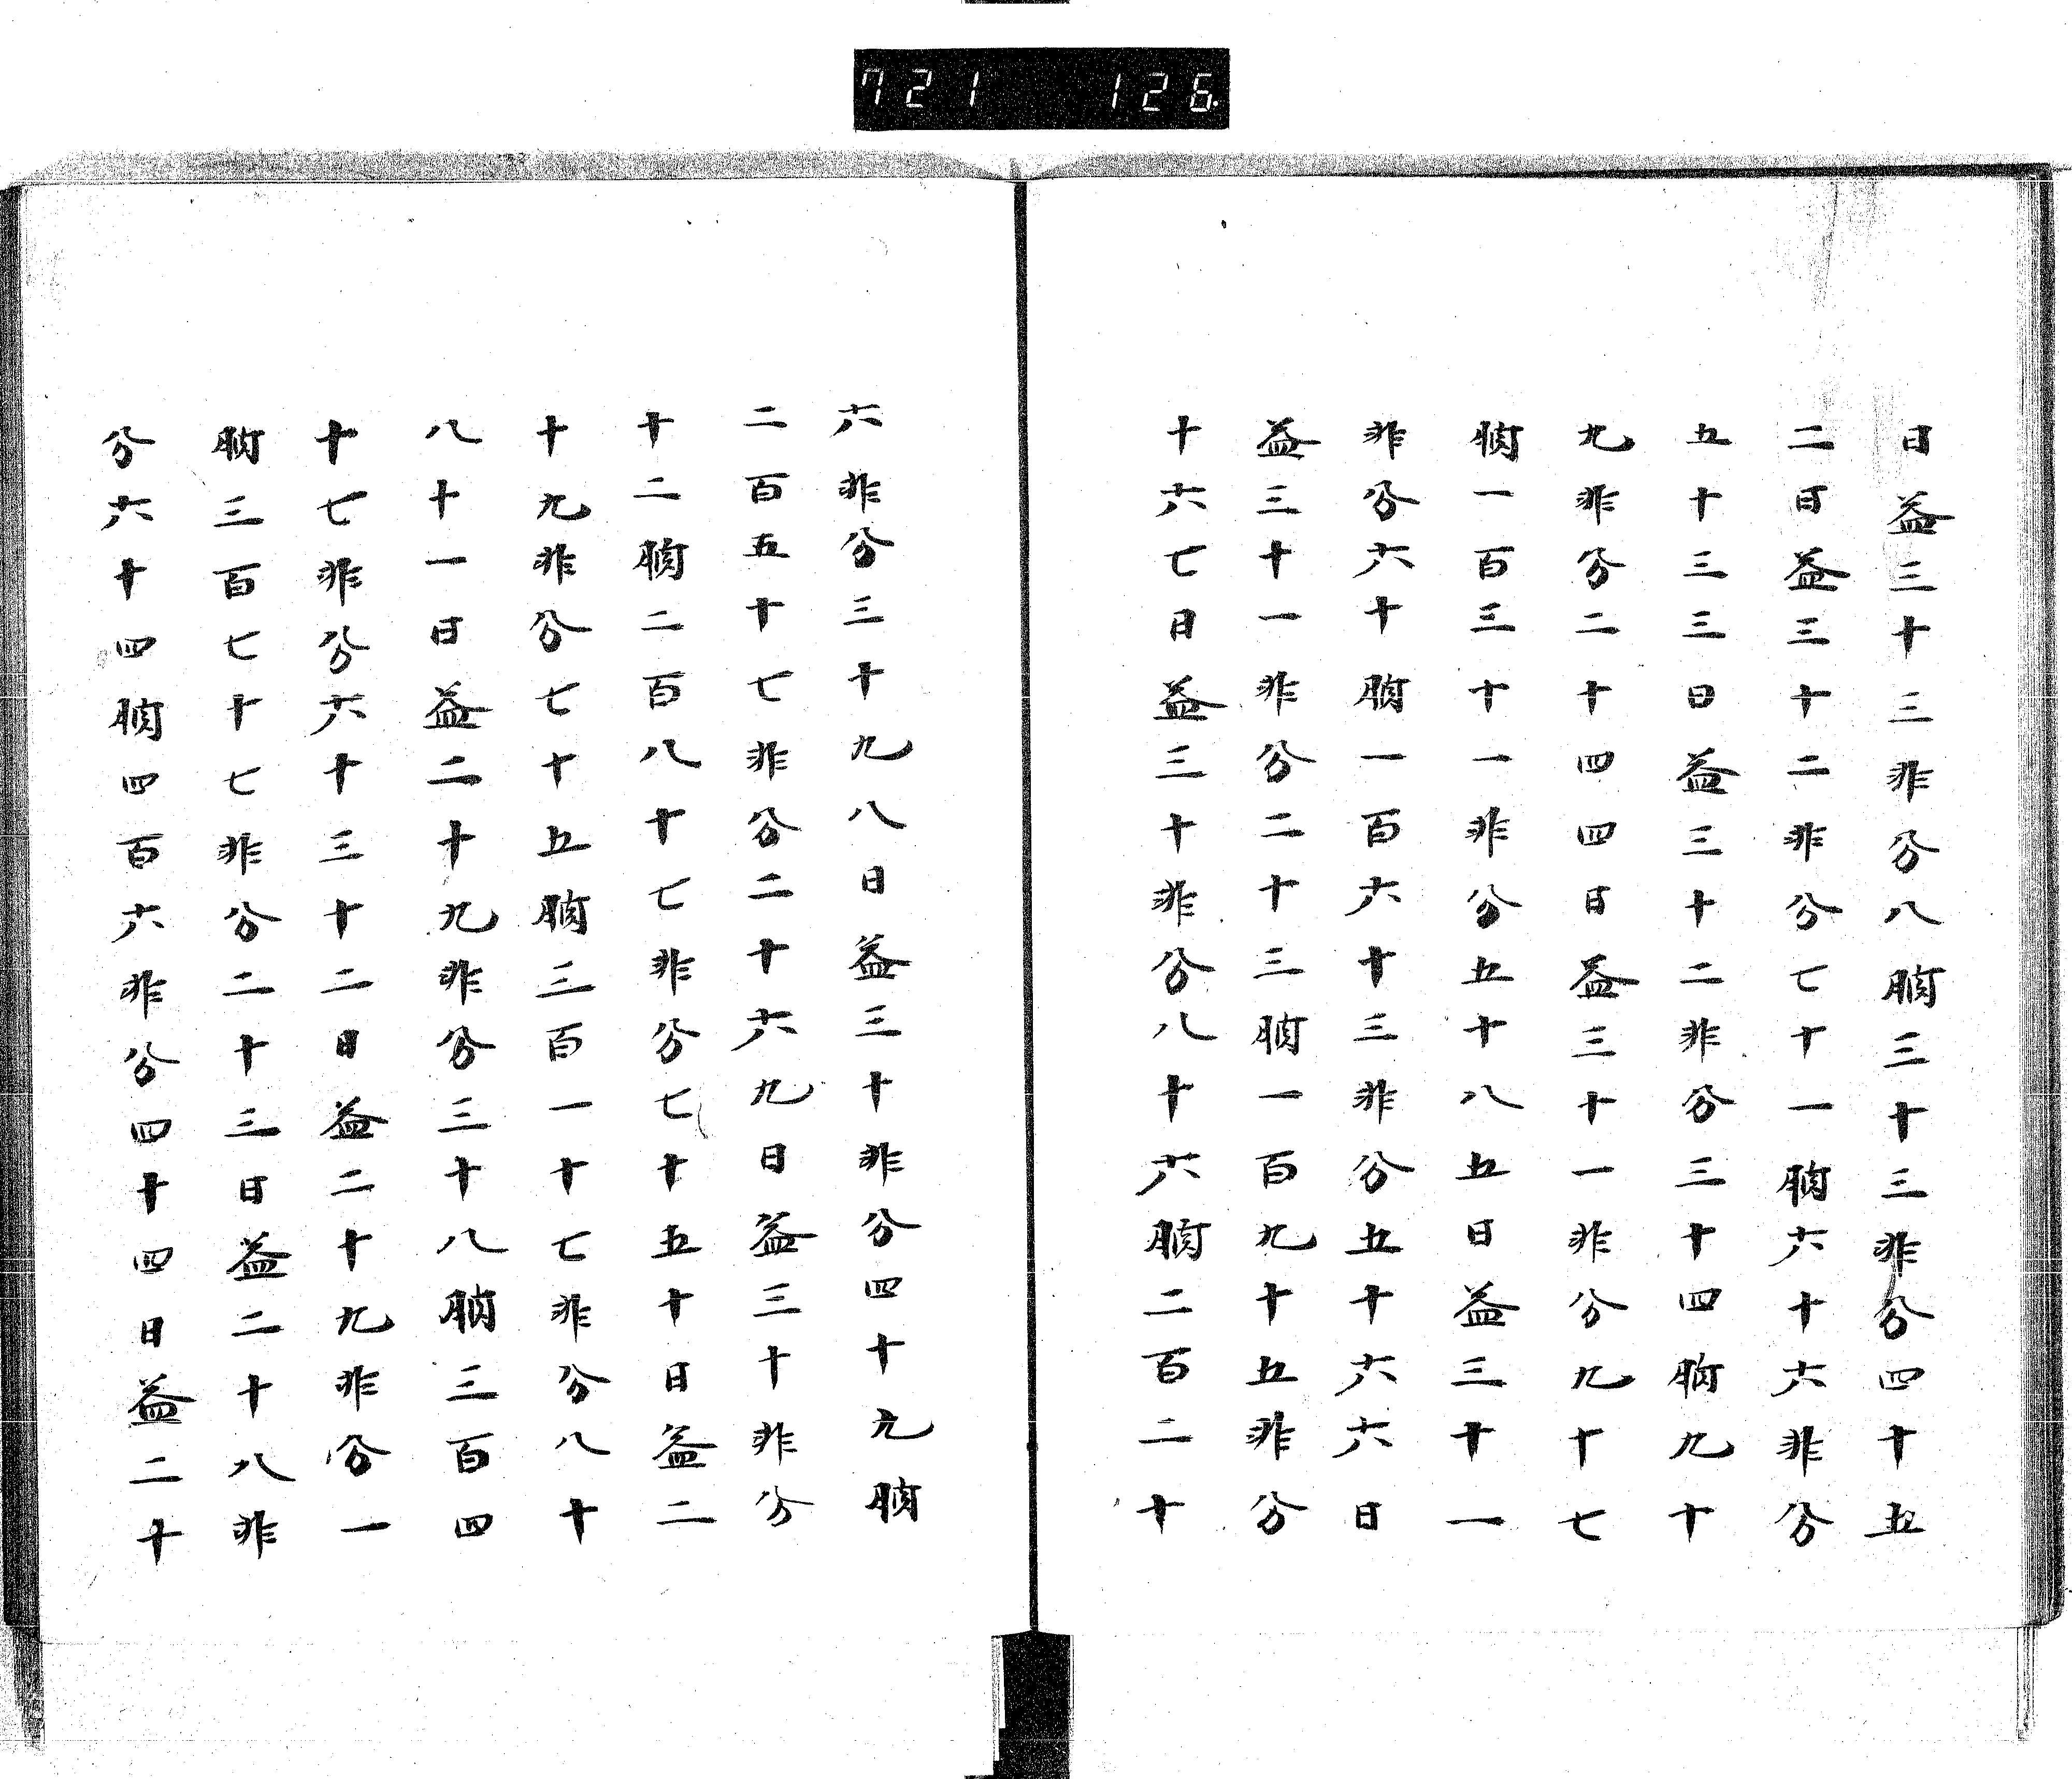 721 126
日益三十三非分八朒三十三非分四十五
二日益三十二非分七十一朒六十六非分
五十三三日益三十二非分三十四朒九十
九非分二十四四日益三十一非分九十七
朒一百三十一非分五十八五日益三十一
非分六十朒一百六十三非分五十六六日
益三十一非分二十三朒一百九十五非分
十六七日益三十非分八十六朒二百二十
六非分三十九八日益三十非分四十九朒
二百五十七非分二十六九日益三十非分
十二朒二百八十七非分七十五十日益二
十九非分七十五朒三百一十七非分八十
八十一日益二十九非分三十八朒三百四
十七非分六十三十二日益二十九非分一
朒三百七十七非分二十三日益二十八非
分六十四朒四百六非分四十四日益二十